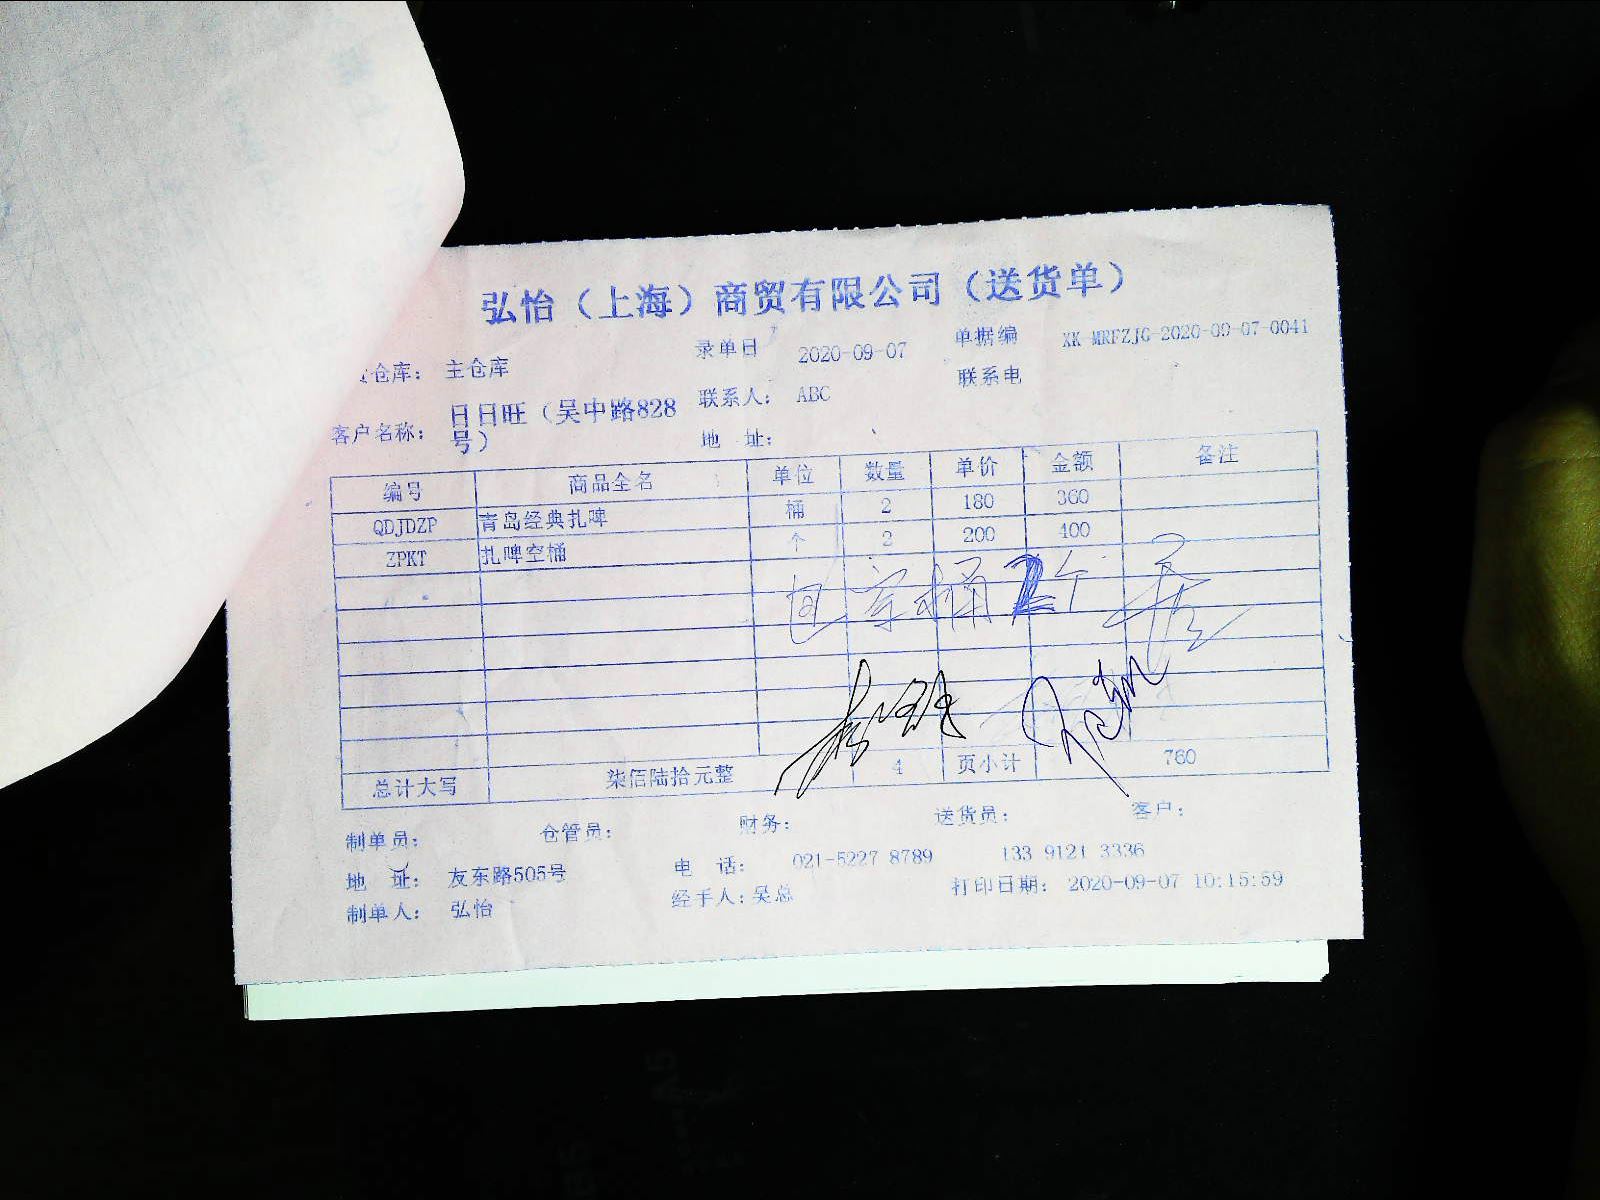 弘怡（上海）商贸有限公司（送货单）
仓库： 主仓库 录单日 2020-09-07 单据编 XK-MRFZJG-2020-09-07-0041
客户名称： 日日旺（吴中路828号） 联系人： ABC 联系电
地 址：
编号 商品全名 单位 数量 单价 金额 备注
QDJDZP 青岛经典扎啤 桶 2 180 360
ZPKT 扎啤空桶 个 2 200 400
回空桶2个
总计大写 柒佰陆拾元整 4 页小计 760
制单员： 仓管员： 财务： 送货员： 客户：
地 址： 友东路505号 电 话： 021-5227 8789 133 9121 3336
制单人： 弘怡 经手人：吴总 打印日期： 2020-09-07 10:15:59